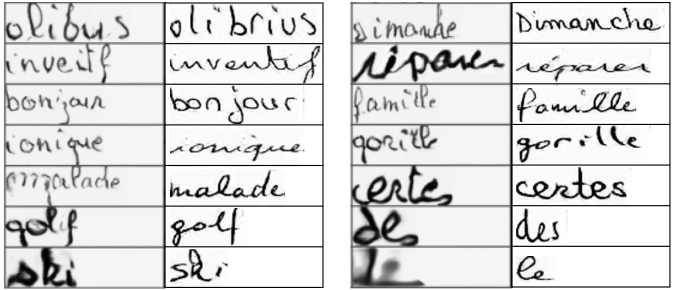 olibus olibrius
inveitf inventif
bonjour bonjour
ionique ionique
malade
golf golf
ski ski
Dimanche
réparer réparer
famille famille
gorille gorille
certes certes
des des
le